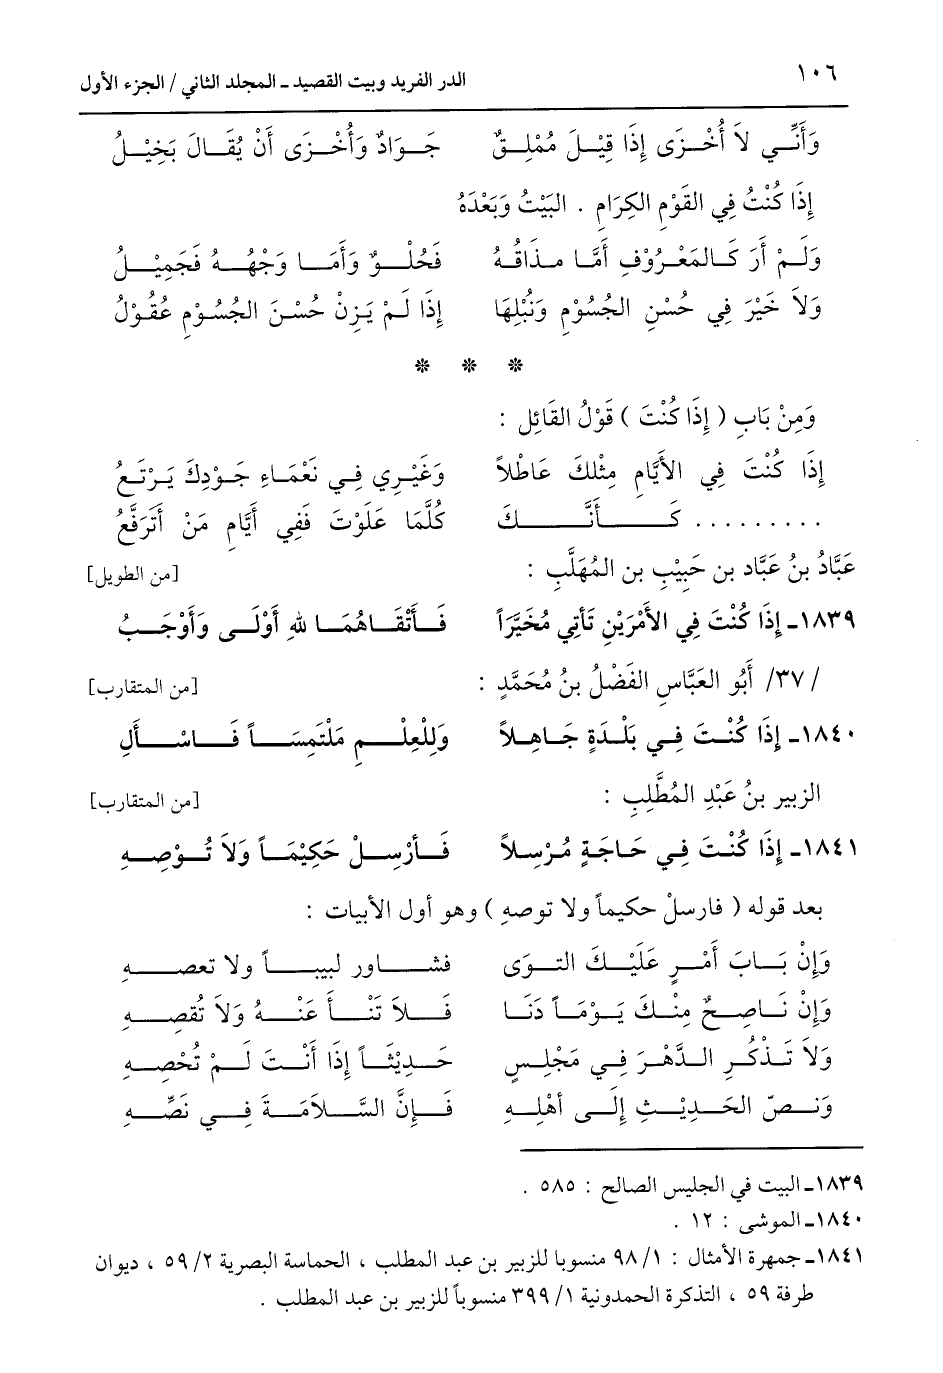 ١٠٦ الدر الفريد وبيت القصيد ـ المجلد الثاني / الجزء الأول
وَأَنِّي لاَ أُخْزَى إِذَا قِيْلَ مُمْلِقٌ جَوَادٌ وَأُخْزَى أَنْ يُقَالَ بَخِيْلُ
إِذَا كُنْتُ فِي القَوْمِ الكِرَامِ . البَيْتُ وَبَعْدَهُ
وَلَمْ أَرَ كَالمَعْرُوْفِ أَمَّا مذَاقُهُ فَحُلْوٌ وَأَمَا وَجْهُهُ فَجَمِيْلُ
وَلاَ خَيْرَ فِي حُسْنِ الجُسُوْمِ وَنُبْلِهَا إِذَا لَمْ يَزِنْ حُسْنَ الجُسُوْمِ عُقُوْلُ
* * *
وَمِنْ بَابِ ( إِذَا كُنْتَ ) قَوْلُ القَائِلِ :
إِذَا كُنْتَ فِي الأَيَّامِ مِثْلكَ عَاطلاً وَغَيْرِي فِي نَعْمَاءِ جَودِكَ يَرْتَعُ
......... كَأَنَّكَ كُلَّمَا عَلَوْتَ فَفِي أَيَّامِ مَنْ أَتَرَفَّعُ
عَبَّادُ بنُ عَبَّاد بن حَبِيْبِ بن المُهَلَّبِ : [من الطويل]
١٨٣٩ـ إِذَا كُنْتَ فِي الأَمْرَيْنِ تَأتِي مُخَيَّرَاً فَأَتْقَاهُمَا للهِ أَوْلَى وَأَوْجَبُ
/ ٣٧/ أَبُو العَبَّاسِ الفَضْلُ بنُ مُحَمَّدٍ : [من المتقارب]
١٨٤٠ـ إِذَا كُنْتَ فِي بَلْدَةٍ جَاهِلاً وَلِلْعِلْمِ مَلْتَمِسَاً فَاسْأَلِ
الزبير بنُ عَبْدِ المُطَّلِبِ : [من المتقارب]
١٨٤١ـ إِذَا كُنْتَ فِي حَاجَةٍ مُرْسِلاً فَأَرْسِلْ حَكِيْمَاً وَلاَ تُوْصِهِ
بعد قوله ( فارسلْ حكيماً ولا توصهِ ) وهو أول الأبيات :
وَإِنْ بَابَ أَمْرٍ عَلَيْكَ التوَى فشاور لبيباً ولا تعصهِ
وَإِنْ نَاصِحٌ مِنْكَ يَوْمَاً دَنَا فَلاَ تَنْأَ عَنْهُ وَلاَ تُقصِهِ
وَلاَ تَذْكُرِ الدَّهْرَ فِي مَجْلِسٍ حَدِيْثَاً إِذَا أَنْتَ لَمْ تُحْصِهِ
وَنصّ الحَدِيْثِ إِلَى أهْلِهِ فَإِنَّ السَّلاَمَةَ فِي نَصِّهِ
١٨٣٩ـ البيت في الجليس الصالح : ٥٨٥ .
١٨٤٠ـ الموشى : ١٢ .
١٨٤١ـ جمهرة الأمثال : ١/ ٩٨ منسوبا للزبير بن عبد المطلب ، الحماسة البصرية ٢/ ٥٩ ، ديوان
طرفة ٥٩ ، التذكرة الحمدونية ١/ ٣٩٩ منسوباً للزبير بن عبد المطلب .